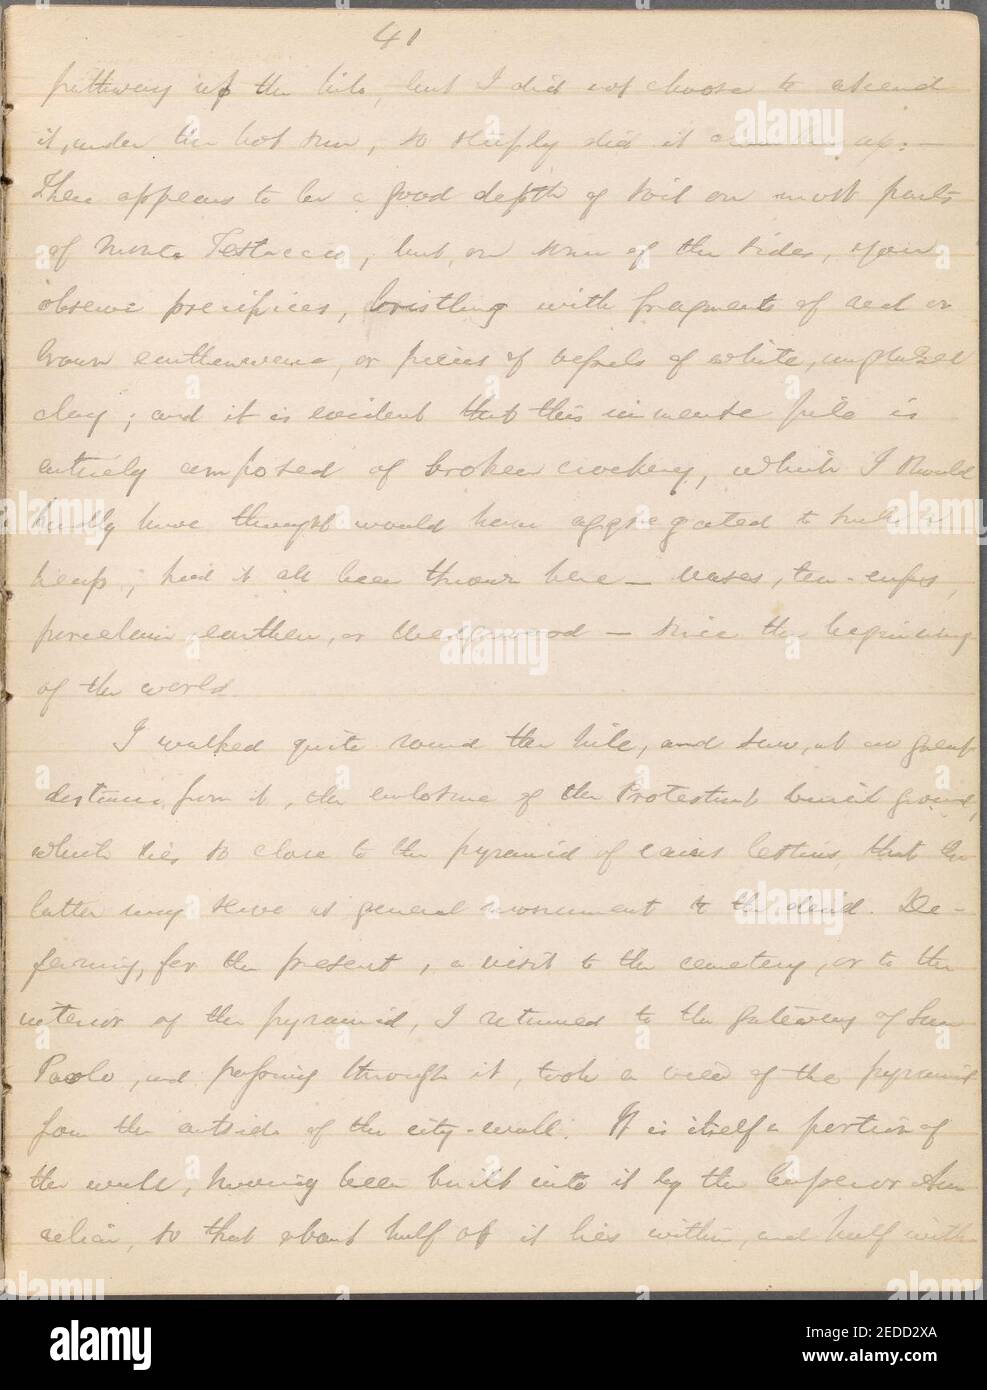 41
pathway up the hill, but I did not choose to ascend
it, under the hot sun, so steeply did it clamber up. —
There appears to be a good depth of soil on most parts
of Monte Testaccio, but, on some of the sides, you
observe precipices, bristling with fragments of red or
brown earthenware, or pieces of vessels of white, unglazed
clay; and it is evident that this immense pile is
entirely composed of broken crockery, which I should
hardly have thought would have aggregated to such a
heap, had it all been thrown here — vases, tea-cups,
porcelain, earthen, or Wedgewood — since the beginning
of the world.
I walked quite round the hill, and saw, at no great
distance from it, the enclosure of the Protestant burial ground,
which lies so close to the pyramid of Caius Cestius, that the
latter may serve as general monument to the dead. De-
ferring, for the present, a visit to the cemetery, or to the
interior of the pyramid, I returned to the gateway of San
Paolo, and passing through it, took a view of the pyramid
from the outside of the city-wall. It is itself a portion of
the wall, having been built into it by the Emperor Au-
relian, so that about half of it lies within, and half with-
alamy
alamy
alamy
alamy
Image ID: 2EDD2XA
www.alamy.com